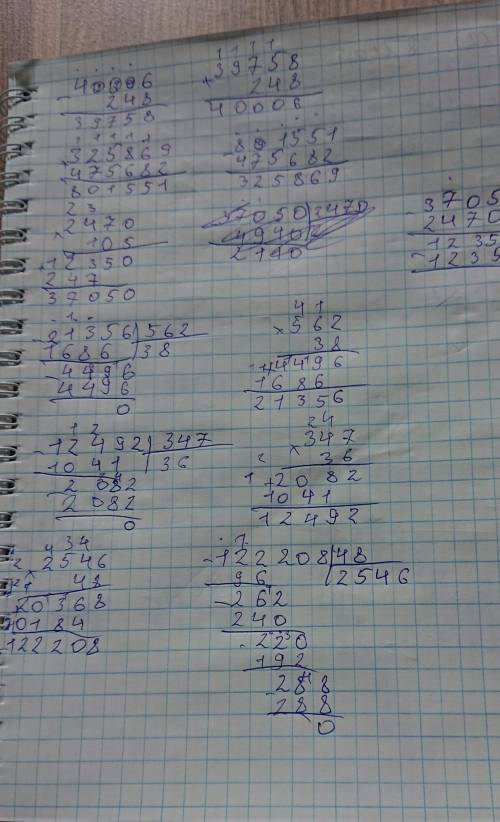 40006
- 248
39758
1111
39758
+ 248
40006
1111
325869
475682
801551
801551
- 475682
325869
23
2470
× 105
+12350
247
37050
37050 2470
4940 2
2140
- 3705
2470
1235
- 1235
- 21356 562
1686 38
- 4496
4496
0
41
× 562
38
+ 4496
1686
21356
- 12492 347
1041 36
- 2082
2082
0
24
× 347
36
+ 2082
1041
12492
434
× 2546
48
20368
10184
122208
- 122208 48
96 2546
- 262
240
- 220
192
- 288
288
0